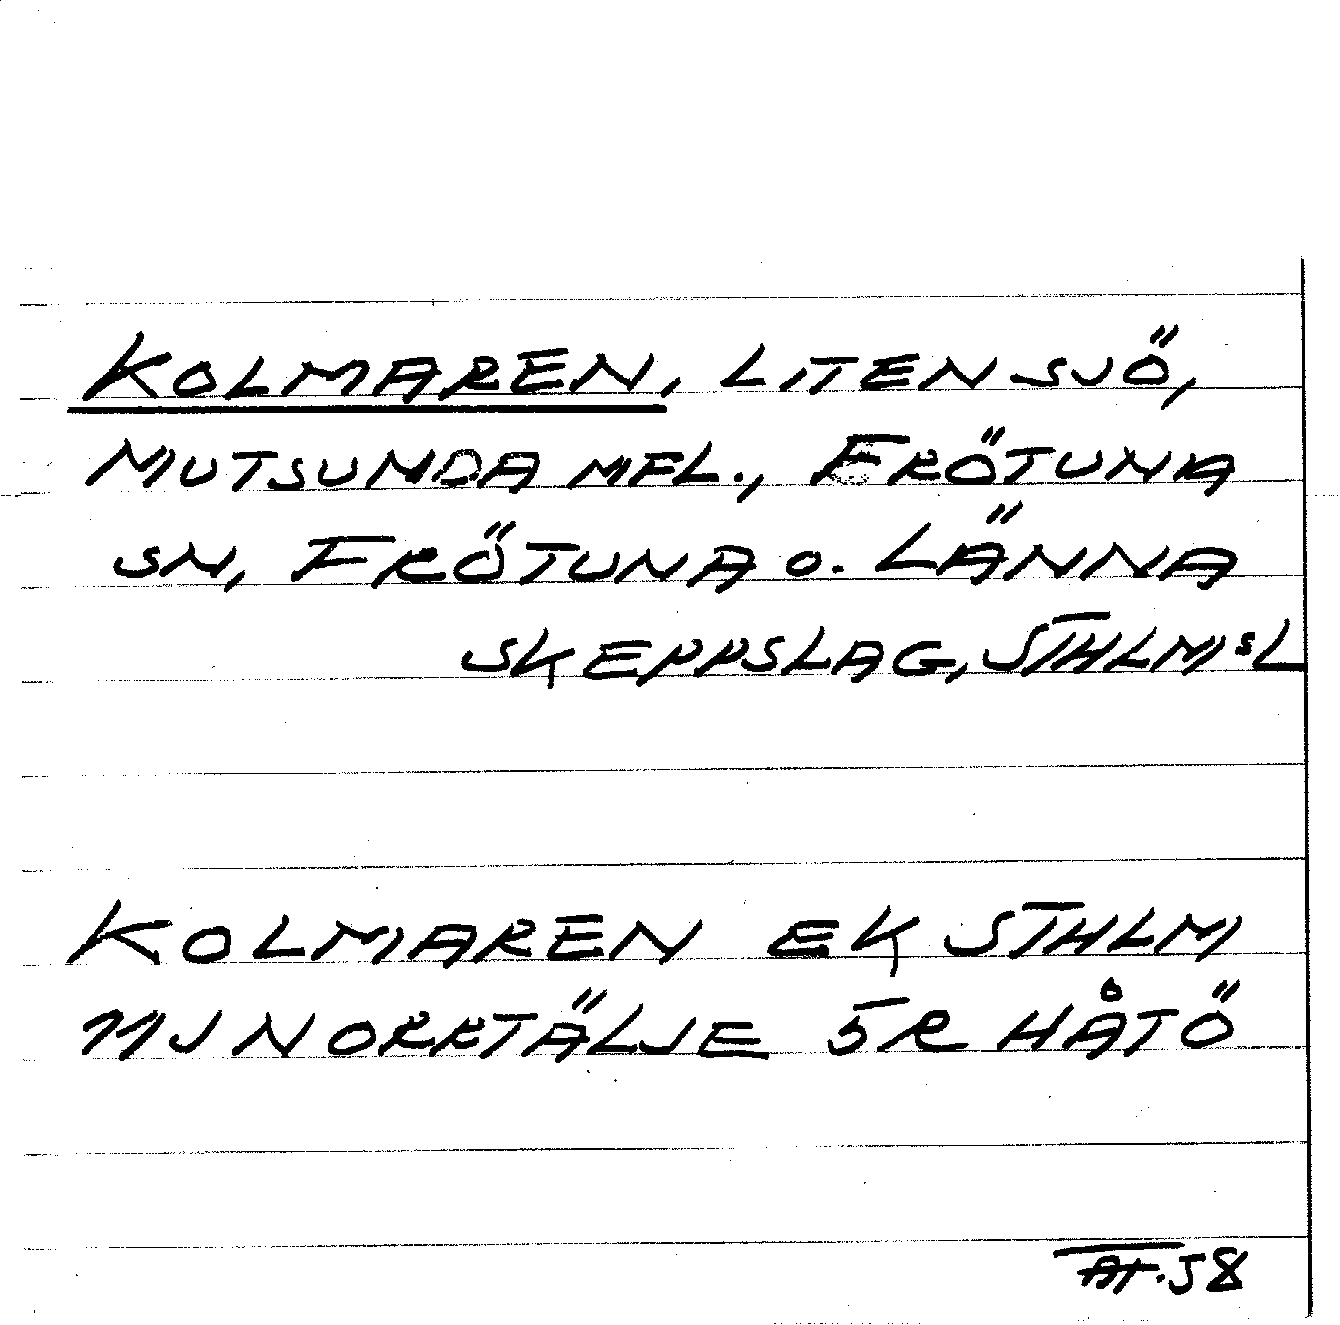 KOLMAREN, LITEN SJÖ,
MUTSUNDA MFL., FRÖTUNA
SN, FRÖTUNA O. LÄNNA
SKEPPSLAG, STHLMSL
KOLMAREN EK STHLM
11J NORRTÄLJE 5R HÅTÖ
58